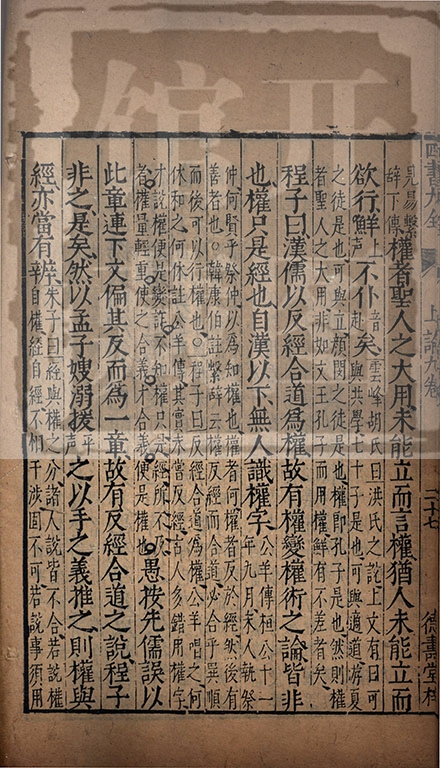 四書大全 上論九卷 二十七 德壽堂梓
見易繫
辭下傳
權者聖人之大用未能立而言權猶人未能立而
欲行鮮上聲不仆音赴矣
雲峰胡氏曰洪氏之說上文有曰可
與共學七十子是也可與適道游夏
之徒是也可與立顏閔之徒是也權即孔子是也然則權
者聖人之大用非如文王孔子而用權鮮有不差者矣
程子曰漢儒以反經合道為權故有權變權術之論皆非
也權只是經也自漢以下無人識權字
公羊傳桓公十一
年九月宋人執祭
仲何賢乎祭仲以為知權也權者何權者反於經然後有
善者也○韓康伯註繫辭云權反經而合道必合乎巽順
而後可以行權也○程子曰反經合道為權公羊唱之何
休和之何休註公羊傳其實未嘗反經古人多錯用權字
才說權便是變詐不知權只是經所不及
者權量輕重使之合義才合義便是權也
○愚按先儒誤以
此章連下文偏其反而為一章故有反經合道之說程子
非之是矣然以孟子嫂溺援平聲之以手之義推之則權與
經亦當有辨
朱子曰經與權之分諸人說皆不合若說權
自權經自經不相干涉固不可若說事須用